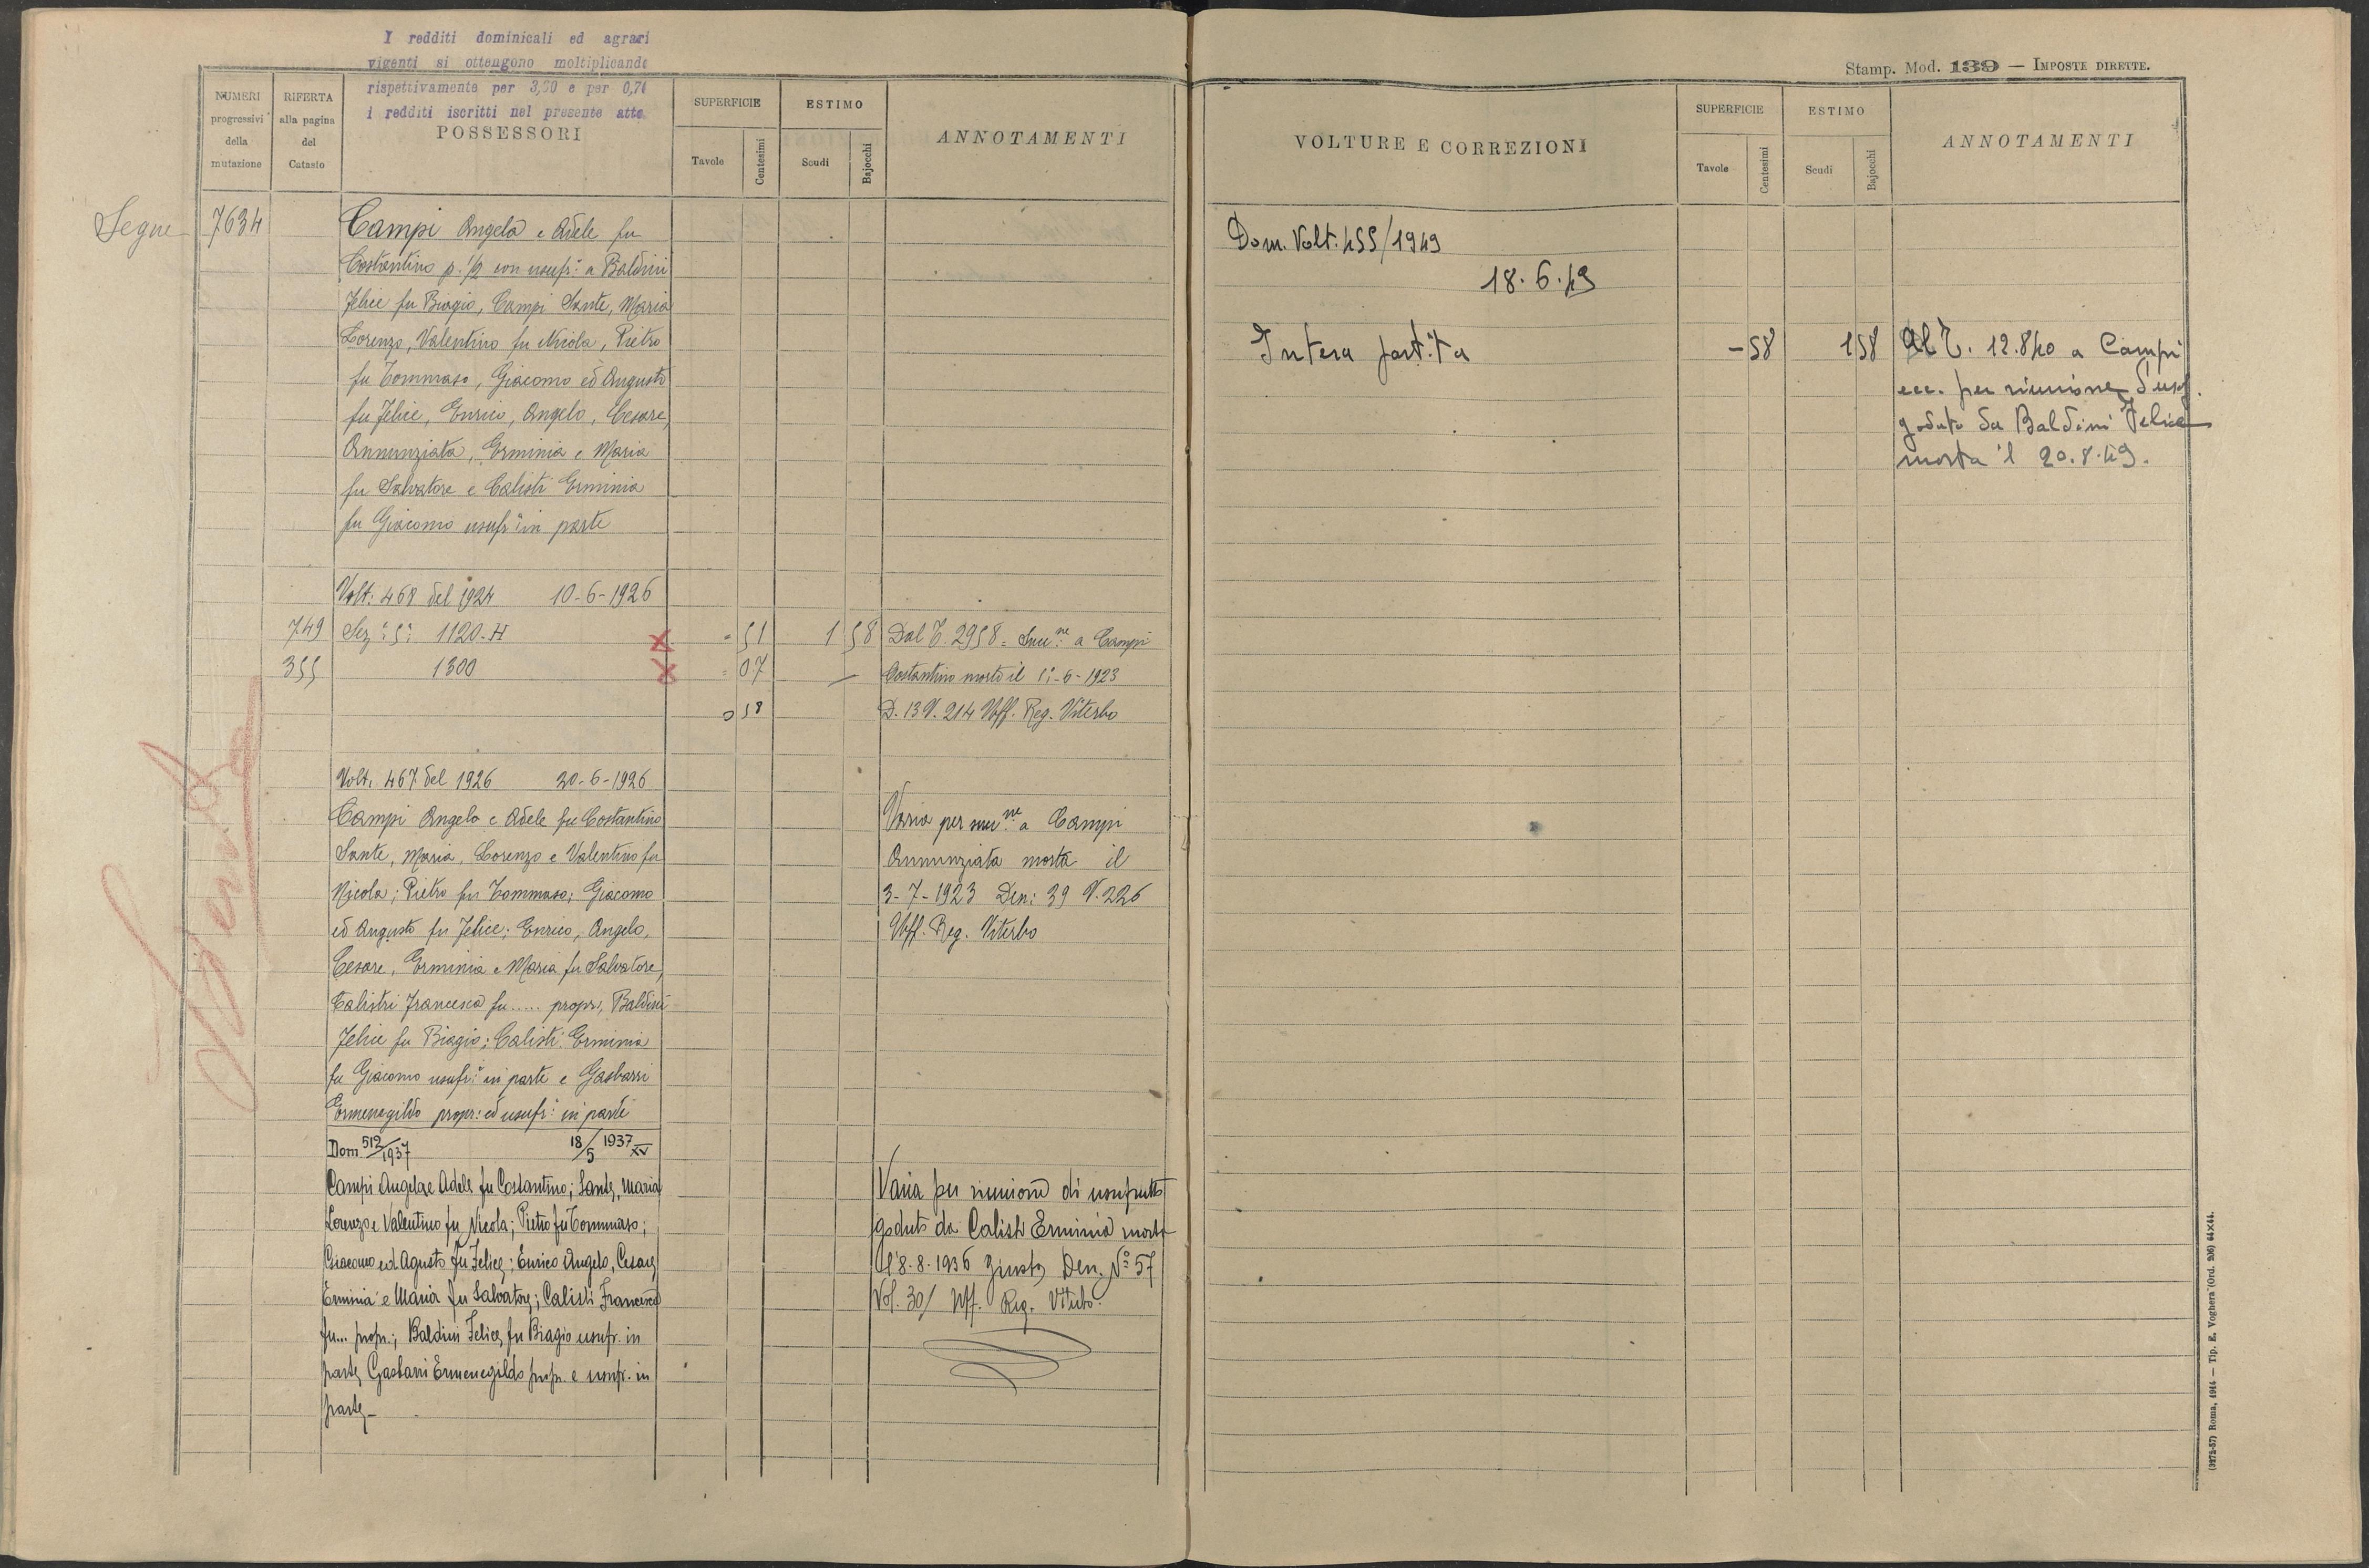 I redditi dominicali ed agrari
vigenti si ottengono moltiplicando
rispettivamente per 3,60 e per 0,74
i redditi iscritti nel presente atto
NUMERI progressivi della mutazione
RIFERTA alla pagina del Catasto
POSSESSORI
SUPERFICIE
Tavole
Centesimi
ESTIMO
Scudi
Bajocchi
ANNOTAMENTI
Segue 7634
Campi Angela e Adele fu
Costantino p. 1/2 con usufr: a Baldini
Felice fu Biagio, Campi Sante, Maria
Lorenzo, Valentino fu Nicola, Pietro
fu Tommaso, Giacomo ed Augusto
fu Felice, Enrico, Angelo, Cesare,
Annunziata, Erminia e Maria
fu Salvatore e Calisti Erminia
fu Giacomo usufr: in parte
Volt: 468 del 1924 10-6-1926
749 Sez: 5: 1120-H X = 51 1 58 Dal T. 2958 = Succ.ne a Campi
355 1300 X = 07 — Costantino morto il 1:-6-1923
0 58 D. 13 V. 214 Uff. Reg. Viterbo
Volt. 467 del 1926 20-6-1926
Campi Angela e Adele fu Costantino
Sante, Maria, Lorenzo e Valentino fu
Nicola; Pietro fu Tommaso; Giacomo
ed Augusto fu Felice; Enrico, Angelo,
Cesare, Erminia e Maria fu Salvatore,
Calistri Francesca fu ..... propr:, Baldini
Felice fu Biagio; Calisti Erminia
fu Giacomo usufr: in parte e Gasbarri
Ermenegildo propr: ed usufr: in parte
Varia per succ.ne a Campi
Annunziata morta il
3-7-1923 Den: 39 V. 226
Uff. Reg. Viterbo
Dom 512/1937 18/5 1937 XV
Campi Angela e Adele fu Costantino; Sante, Maria
Lorenzo e Valentino fu Nicola; Pietro fu Tommaso;
Giacomo ed Agusto fu Felice; Enrico Angelo, Cesare
Erminia e Maria fu Salvatore; Calisti Francesca
fu... propr.; Baldini Felice fu Biagio usufr. in
parte Gasbarri Ermenegildo propr. e usufr. in
parte
Varia per riunione di usufrutto
goduto da Calisti Erminia morta
l'8.8.1936 giusta Den. N° 57
Vol. 301 Uff. Reg. Viterbo.
Stamp. Mod. 139 — IMPOSTE DIRETTE.
VOLTURE E CORREZIONI
SUPERFICIE
Tavole
Centesimi
ESTIMO
Scudi
Bajocchi
ANNOTAMENTI
Dom. Volt. 455/1949
18.6.49
Intera partita - 58 1 58 Al T. 12.840 a Campi
ecc. per riunione d'usuf.
goduto da Baldini Felice
morta il 20.8.49.
(3272-57) Roma, 1944 — Tip. E. Voghera (Ord. 206) 44×44.